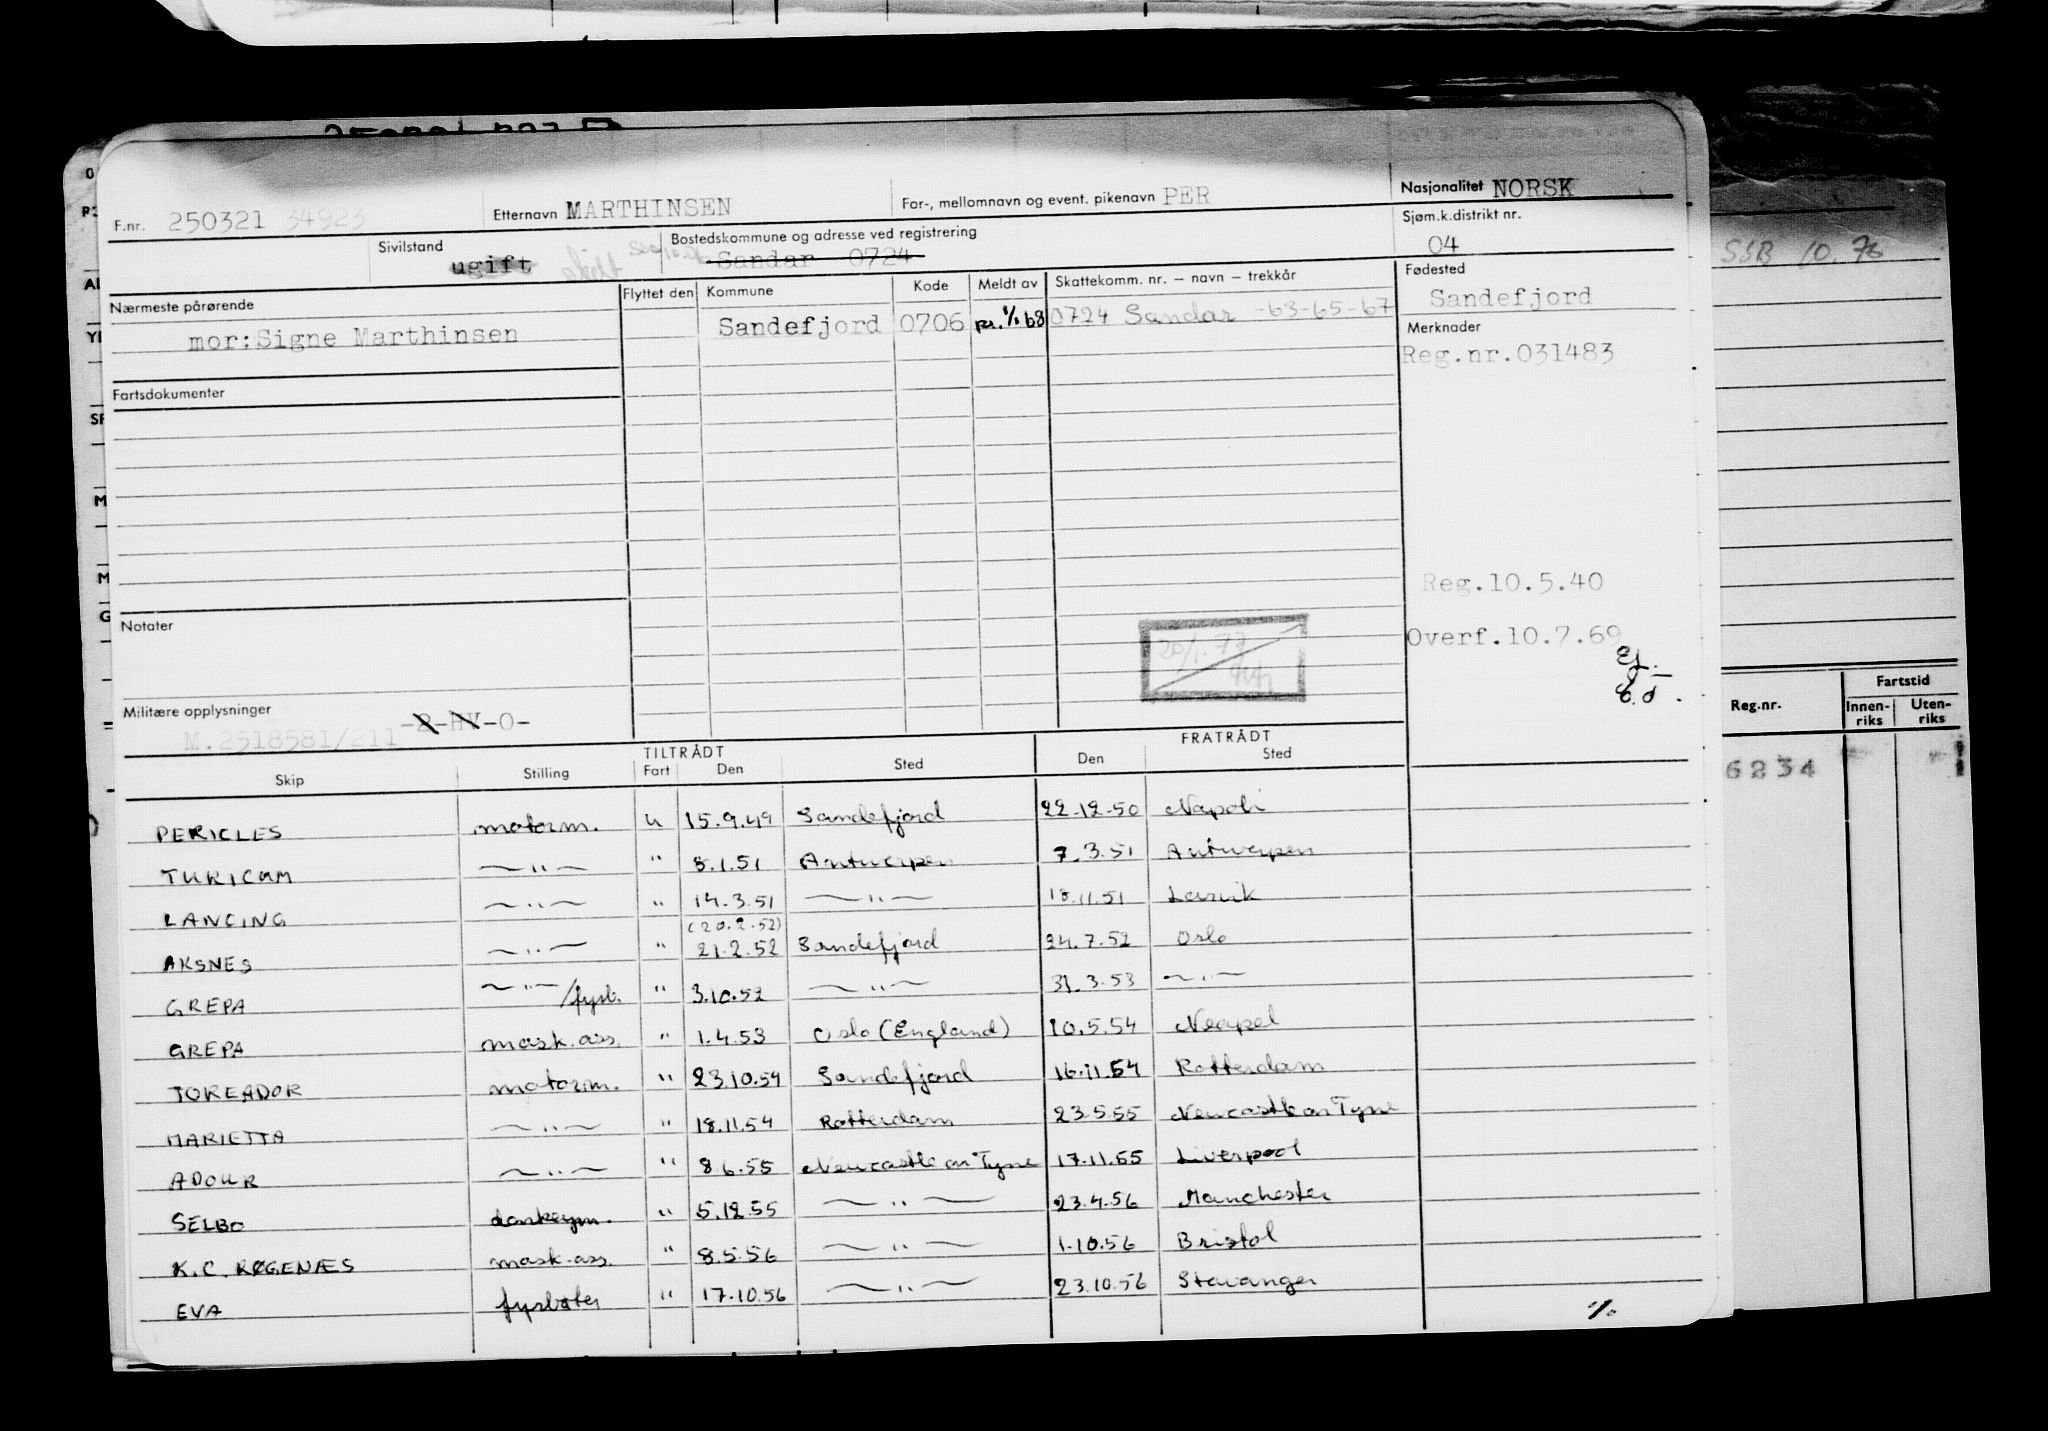 F.nr. 250321 34923 Etternavn MARTHINSEN For-, mellomnavn og event. pikenavn PER Nasjonalitet NORSK
Sivilstand ugift Bostedskommune og adresse ved registrering Sandar 0724 Sjøm.k.distrikt nr. 04
SSB 10.76
Nærmeste pårørende Flyttet den Kommune Kode Meldt av Skattekomm. nr. – navn – trekkår Fødested
mor:Signe Marthinsen Sandefjord 0706 1/1 68 0724 Sandar -63-65-67 Sandefjord
Merknader
Reg.nr.031483
Fartsdokumenter
Reg.10.5.40
Notater
20/1.77
Overf.10.7.69
Militære opplysninger
M.2518581/211 -2-HV-O-
Reg.nr. Fartstid
Innen-riks Uten-riks
6234
TILTRÅDT FRATRÅDT
Skip Stilling Fart Den Sted Den Sted
PERICLES motorm. u 15.9.49 Sandefjord 22.12.50 Napoli
TURICUM —"— " 5.1.51 Antwerpen 7.3.51 Antwerpen
LANCING —"— " 14.3.51 —"— 18.11.51 Larvik
(20.2.52)
AKSNES —"— " 21.2.52 Sandefjord 24.7.52 Oslo
GREPA —"—/fyrb. " 3.10.52 —"— 31.3.53 —"—
GREPA mask.ass. " 1.4.53 Oslo (England) 10.5.54 Neapel
TOREADOR motorm. " 23.10.54 Sandefjord 16.11.54 Rotterdam
MARIETTA —"— " 18.11.54 Rotterdam 23.5.55 Newcastle on Tyne
ADOUR —"— " 8.6.55 Newcastle on Tyne 17.11.55 Liverpool
SELBO donkeym. " 5.12.55 —"— 23.4.56 Manchester
K.C. RØGENÆS mask.ass. " 8.5.56 —"— 1.10.56 Bristol
EVA fyrbøter " 17.10.56 —"— 23.10.56 Stavanger